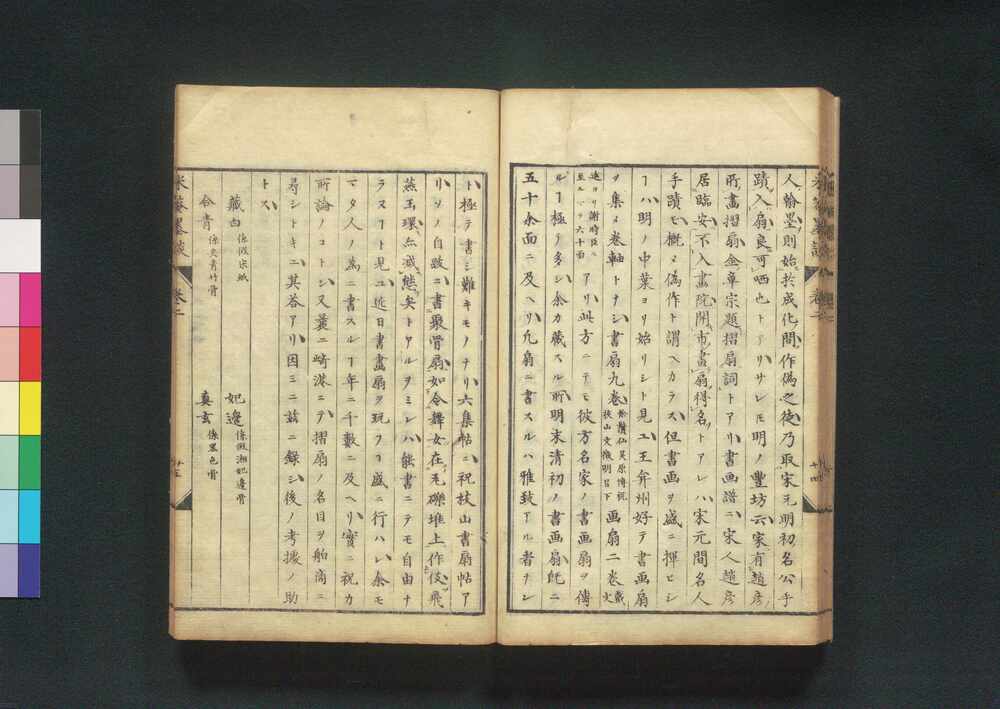 人翰墨則始於成化間作偽之徒乃取宋元明初名公手
蹟入扇良可哂也トアリサレ𪜈明ノ豐坊云家有趙彦
所畫摺扇金章宗題摺扇詞トアリ書画譜ニ宋人趙彦
居臨安不入畫院開市畫扇得名トアレハ宋元間名人
手蹟モ概メ偽作ト謂ヘカラス但書画ヲ盛ニ揮ヒシ
ヿハ明ノ中葉ヨリ始リシト見ユ王弇州好テ書画扇
ヲ集メ卷軸トナシ書扇九卷
画扇二卷
戴文
進ヨリ謝時臣ニ
至ルマヲ六十面
アリ此方ニテモ彼方名家ノ書画扇ヲ傳
ルヿ極テ多シ余カ藏スル所明末清初ノ書画扇既ニ
五十余面ニ及ヘリ凢扇ニ書スルハ雅致アル者ナレ
ト極テ書シ難キモノナリ六集帖ニ祝枝山書扇帖ア
リソノ自跋ニ書聚骨扇如令舞女在瓦礫堆上作伎飛
燕玉環亦減態矣トアルヲミレハ能書ニテモ自由ナ
ラヌヿト見ユ近日書畫扇ヲ玩フヿ盛ニ行ハレ余モ
マタ人ノ為ニ書スルヿ年ニ千數ニ及ヘリ實ニ祝カ
所論ノコトシ又曩ニ崎渓ニテ摺扇ノ名目ヲ舶商ニ
尋シトキニ其荅アリ因ミニ茲ニ録シ後ノ考據ノ助
トス
藏白 係假宋紙
妃邊 係假湘妃邊骨
全青 係夾青竹骨
真玄 係黑色骨
米菴墨談 卷二
廿四
廿五